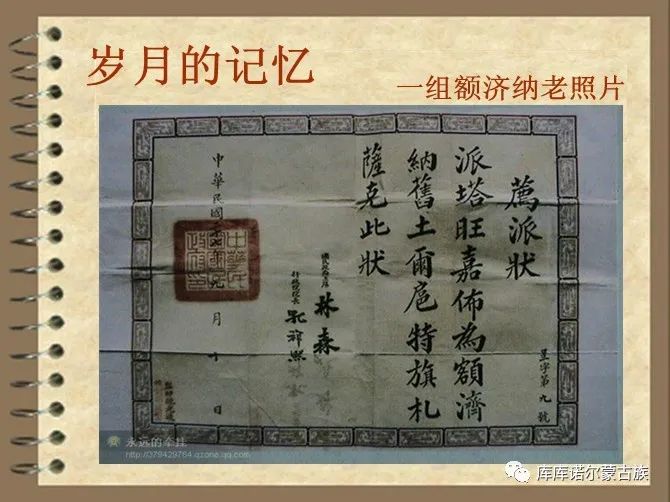 岁月的记忆
一组额济纳老照片
薦派狀
派塔旺嘉佈為額濟
納舊土爾扈特旗札
薩克此狀
林森
行政院院長 孔祥熙
中華民國
月 日
星字第九號
永远的牵挂
http://379429764.qzone.qq.com
库库诺尔蒙古族